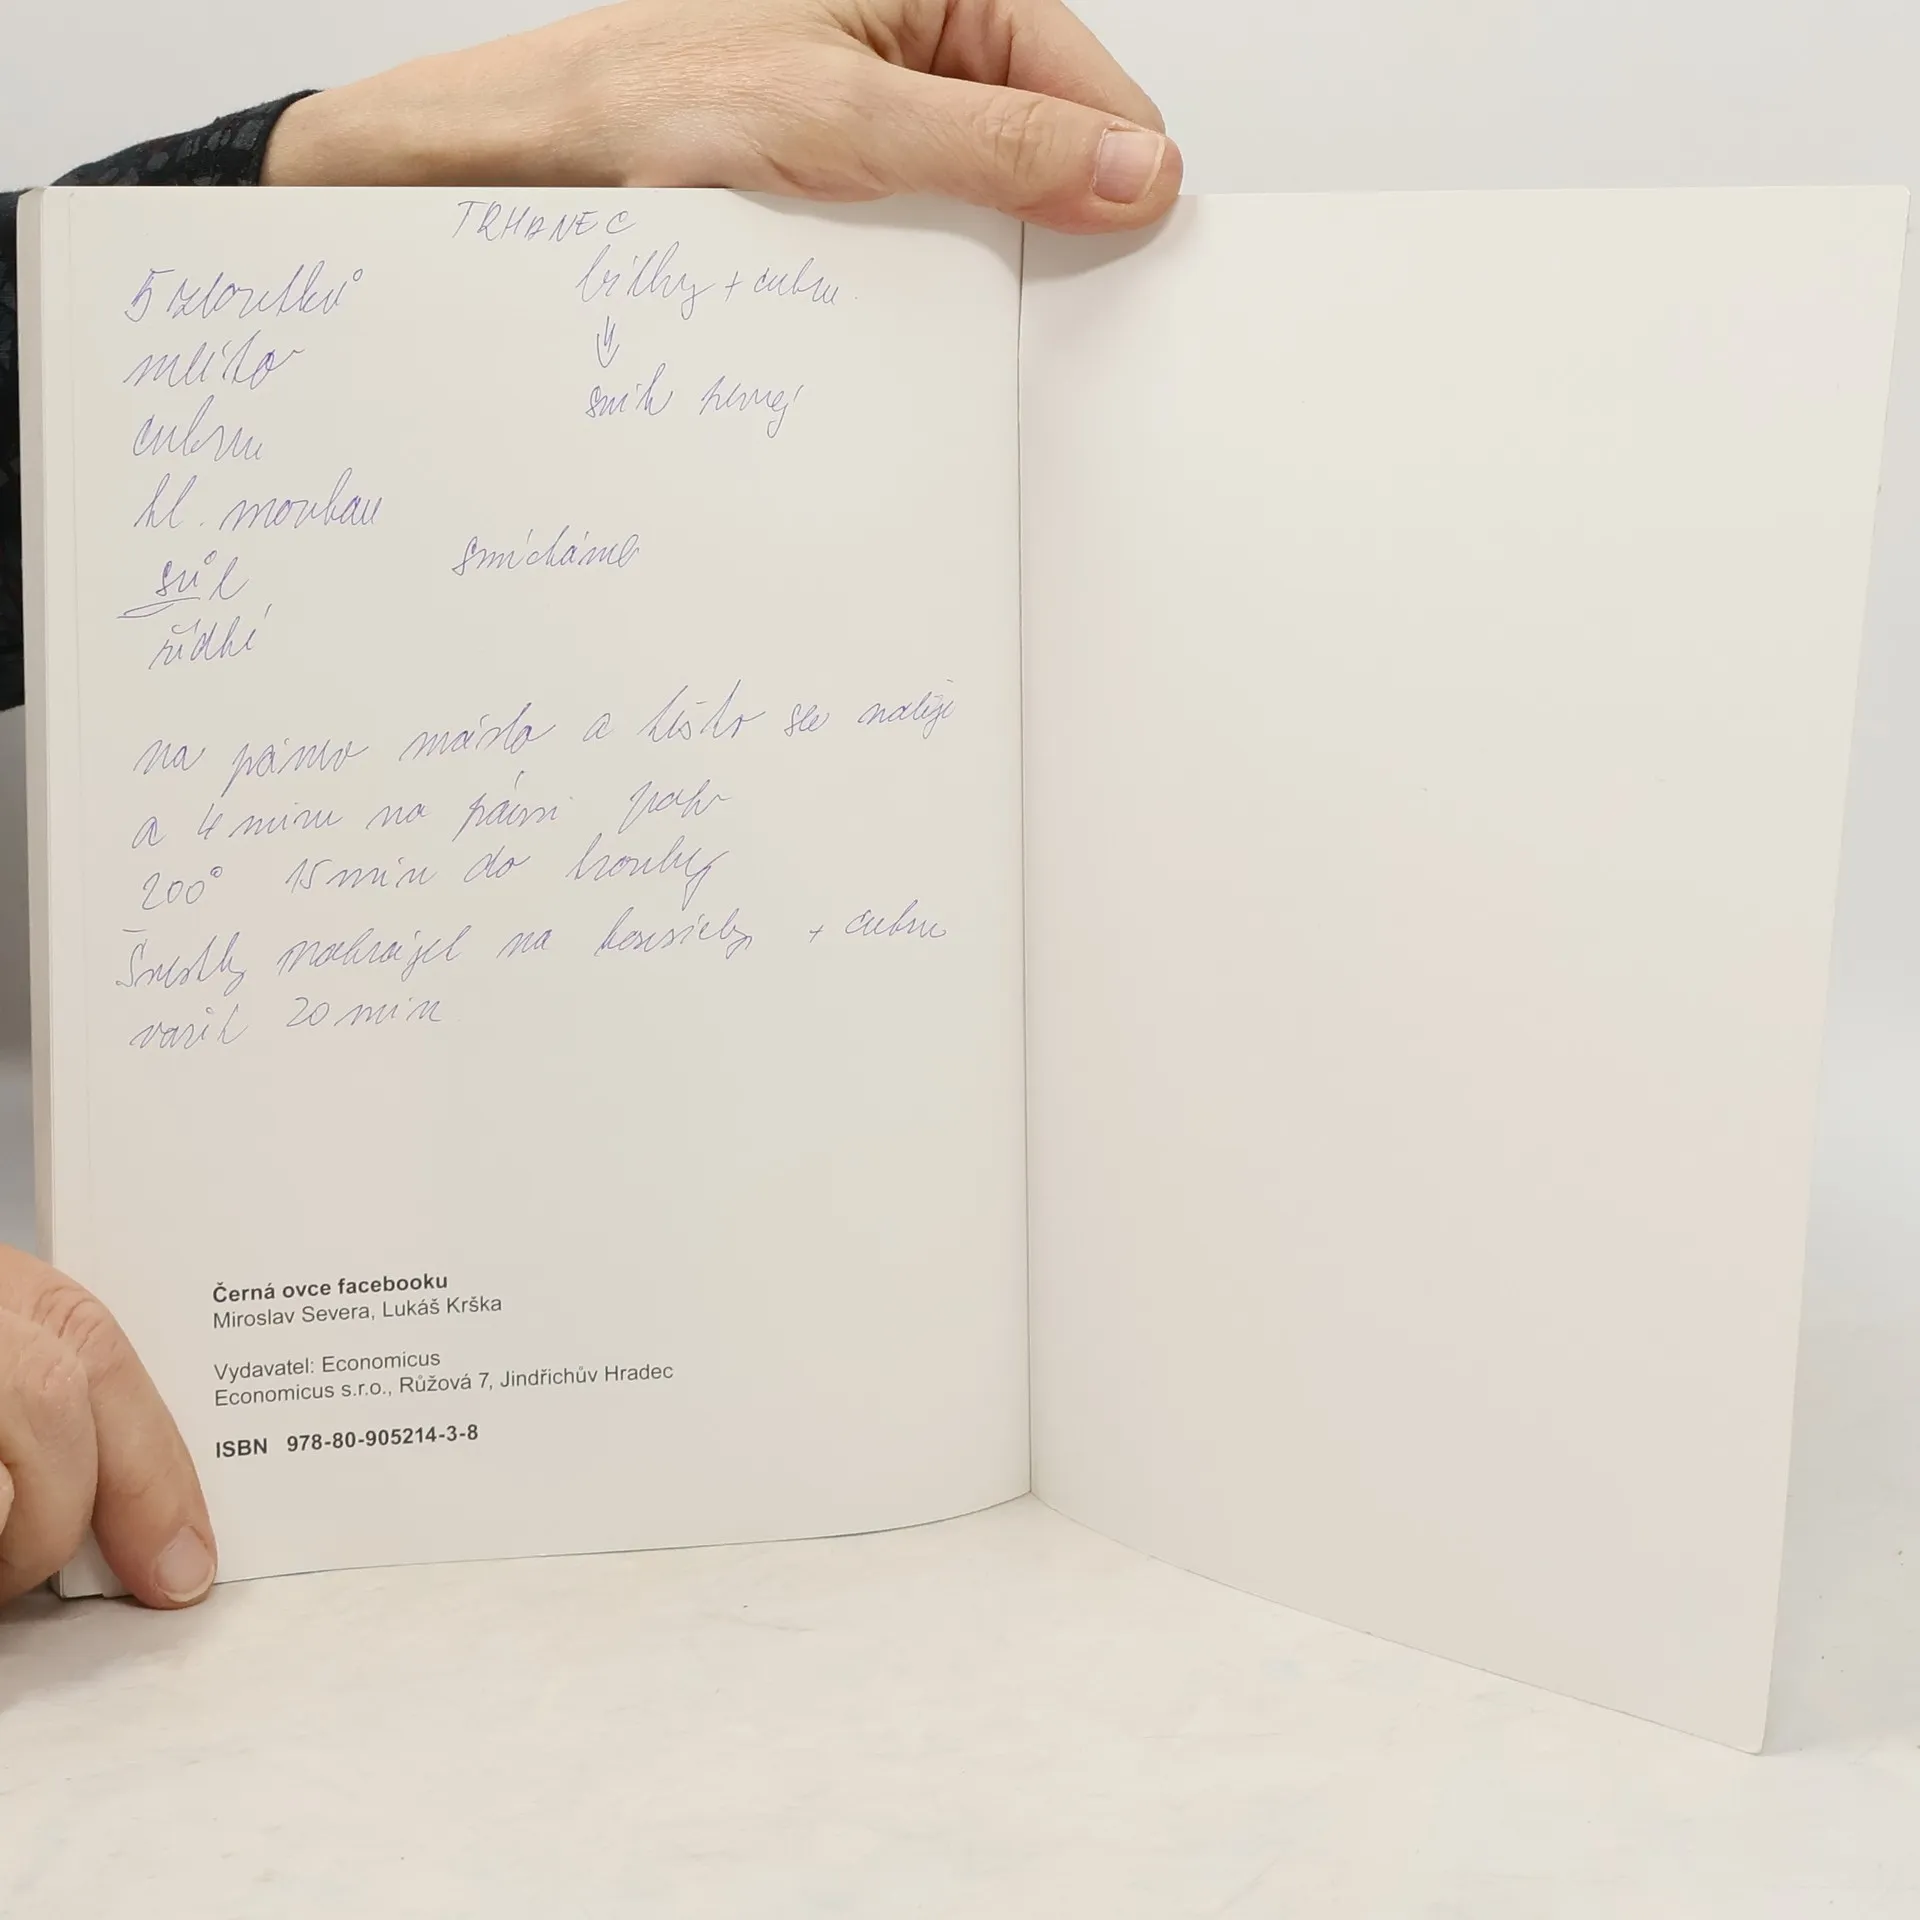 TRHANEC
5 žloutků
mlíko
cukru
hl. moukau
sůl
řídké
bílky + cukru
sníh pevnej
smícháme
na pánvo máslo a těsto se naleje
a 4 minu na pánvi pak
200° 15 min do trouby
Švestky nakrájet na kousíčky + cukru
vařit 20 min
Černá ovce facebooku
Miroslav Severa, Lukáš Krška
Vydavatel: Economicus
Economicus s.r.o., Růžová 7, Jindřichův Hradec
ISBN 978-80-905214-3-8